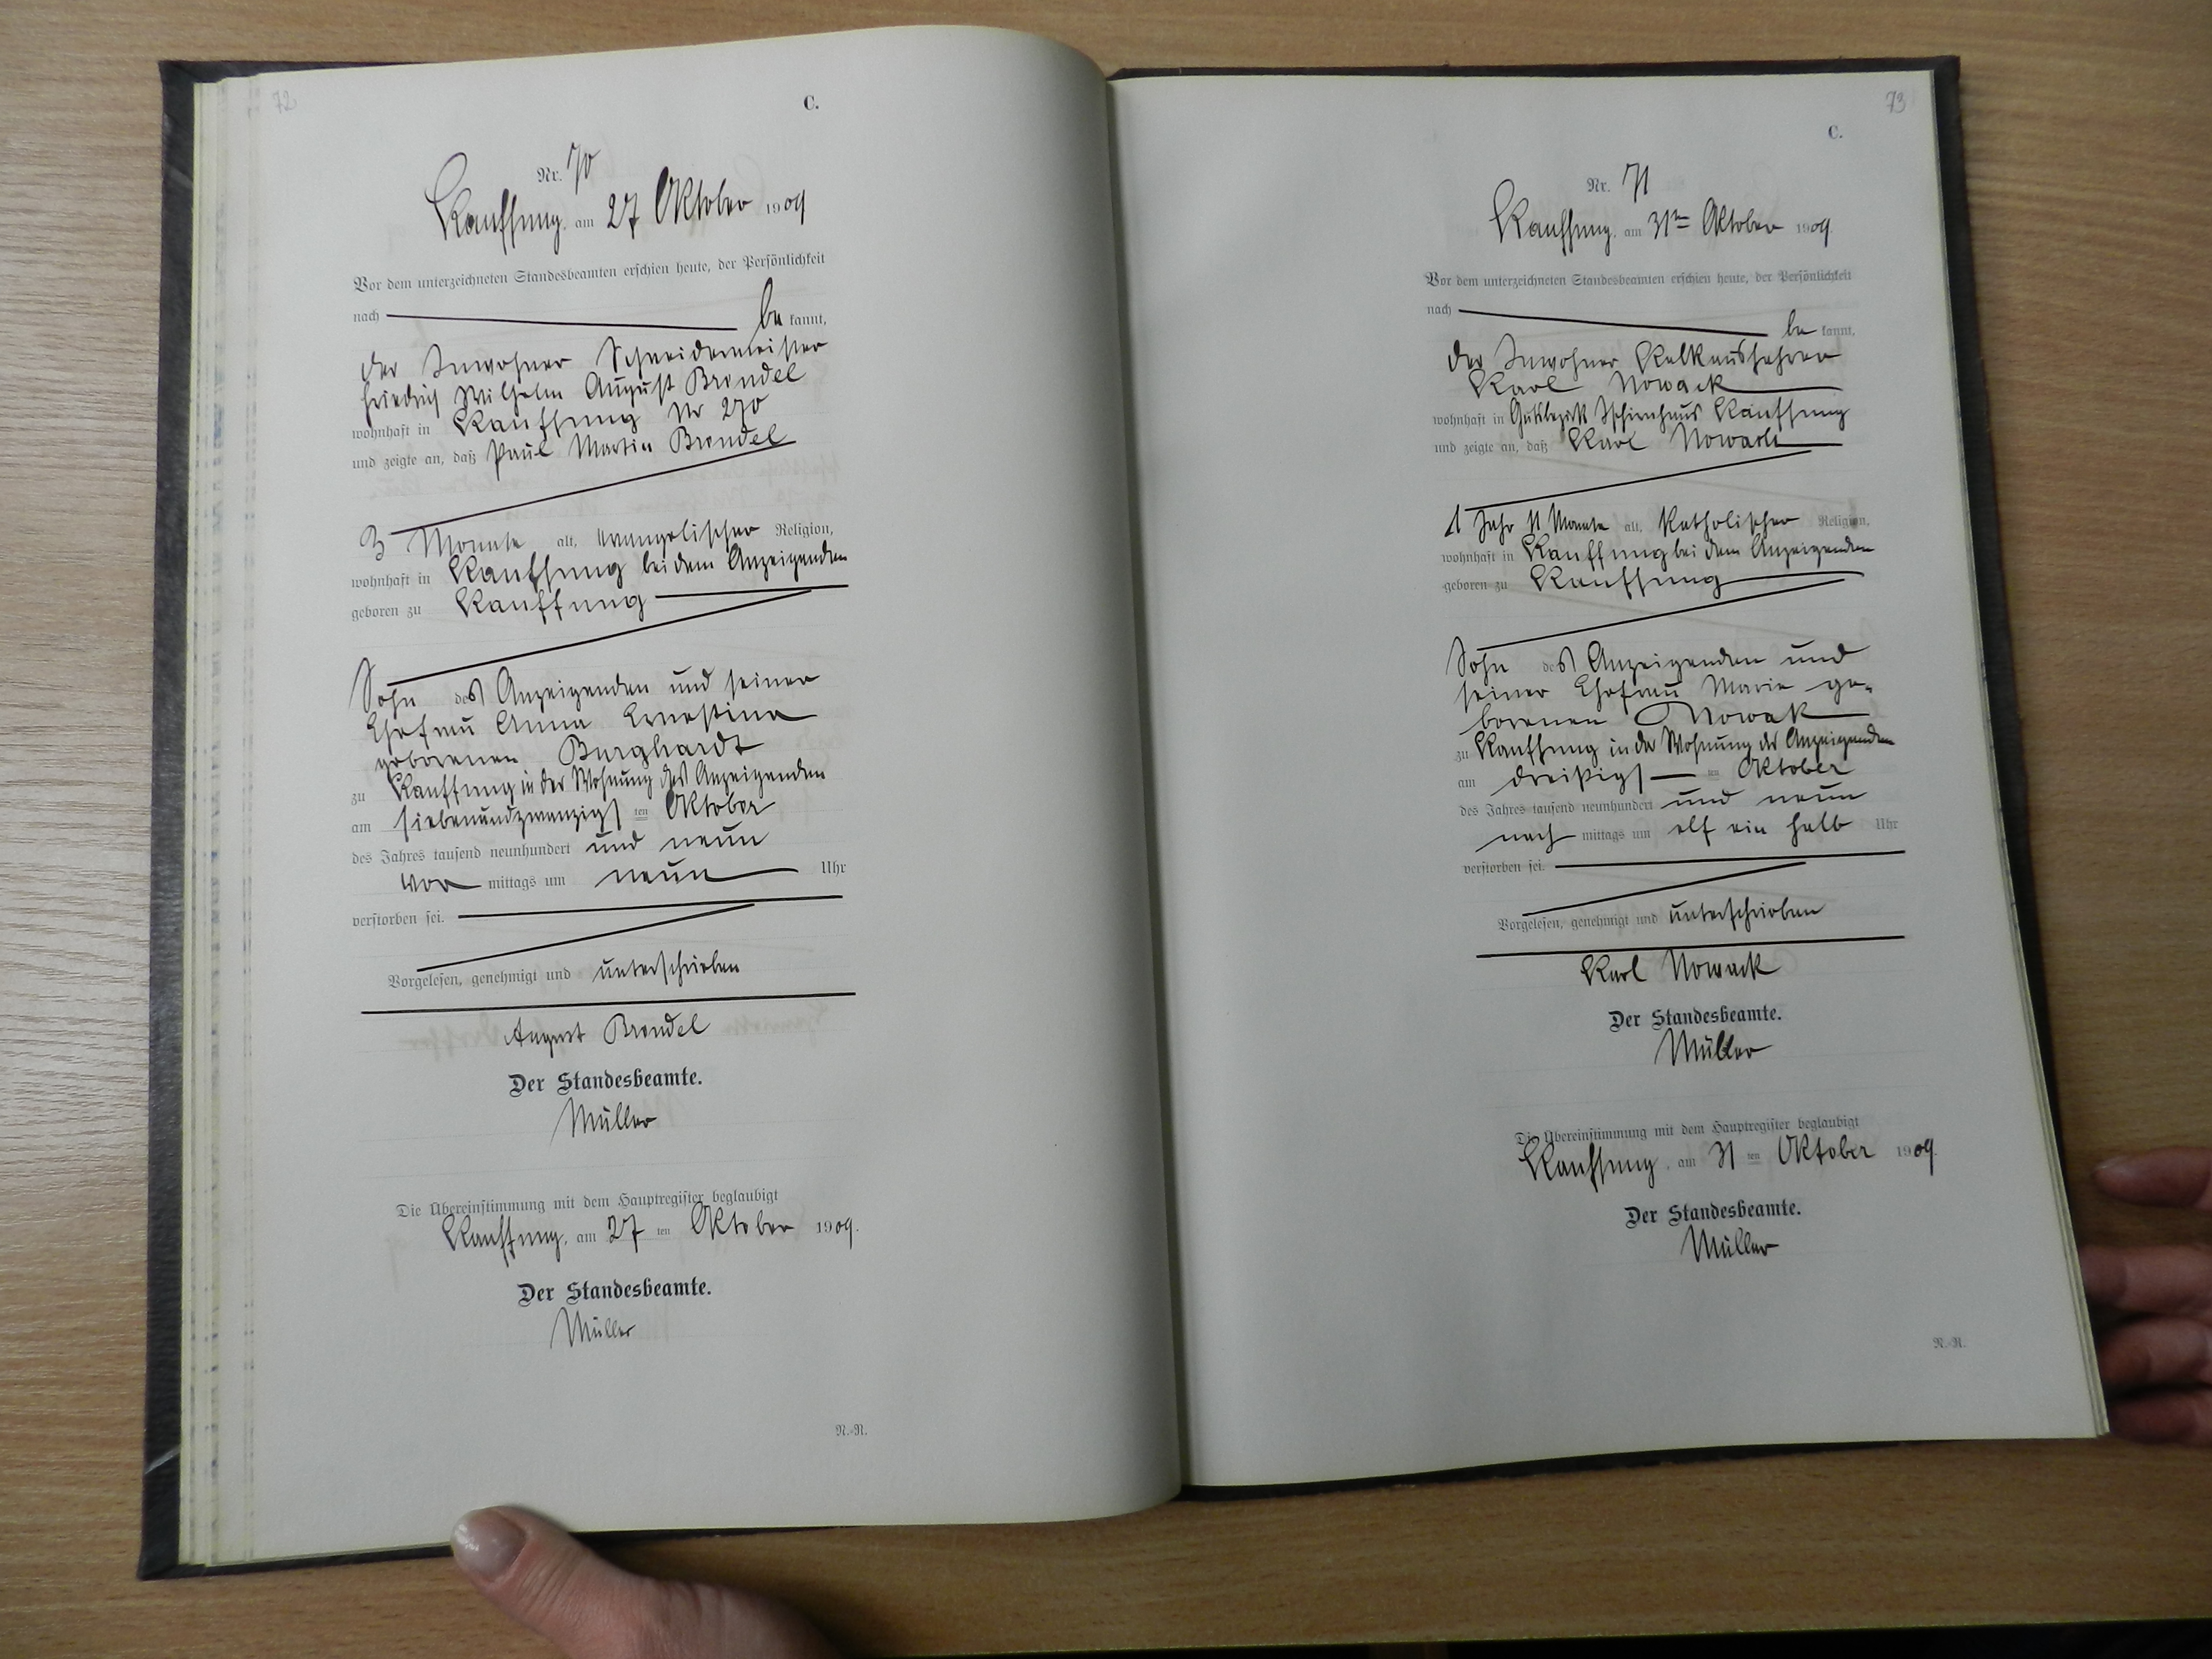 72
C.
Nr. 70
Kauffung, am 27 Oktober 1909
Vor dem unterzeichneten Standesbeamten erschien heute, der Persönlichkeit
nach be kannt,
der Inwohner Schneidermeister
Friedrich Wilhelm August Brendel
wohnhaft in Kauffung Nr 270
und zeigte an, daß Paul Martin Brendel
3 Monate alt, evangelischer Religion,
wohnhaft in Kauffung bei dem Anzeigenden
geboren zu Kauffung
Sohn des Anzeigenden und seiner
Ehefrau Anna Ernestina
geborenen Burghardt
zu Kauffung in der Wohnung des Anzeigenden
am siebenundzwanzigs ten Oktober
des Jahres tausend neunhundert und neun
vor mittags um neun Uhr
verstorben sei.
Vorgelesen, genehmigt und unterschrieben
August Brendel
Der Standesbeamte.
Müller
Die Übereinstimmung mit dem Hauptregister beglaubigt
Kauffung, am 27 ten Oktober 1909.
Der Standesbeamte.
Müller
N.-N.
73
C.
Nr. 71
Kauffung, am 31ten Oktober 1909.
Vor dem unterzeichneten Standesbeamten erschien heute, der Persönlichkeit
nach be kannt,
der Inwohner Kalkausfahrer
Karl Nowack
wohnhaft in Gutsbezirk Tschirnhaus Kauffung
und zeigte an, daß Karl Nowack
1 Jahr 11 Monate alt, katholischer Religion,
wohnhaft in Kauffung bei dem Anzeigenden
geboren zu Kauffung
Sohn des Anzeigenden und
seiner Ehefrau Marie ge-
borenen Nowak
zu Kauffung in der Wohnung des Anzeigenden
am dreißigs ten Oktober
des Jahres tausend neunhundert und neun
nach mittags um elf ein halb Uhr
verstorben sei.
Vorgelesen, genehmigt und unterschrieben
Karl Nowack
Der Standesbeamte.
Müller
Die Übereinstimmung mit dem Hauptregister beglaubigt
Kauffung, am 31 ten Oktober 1909.
Der Standesbeamte.
Müller
N.-N.